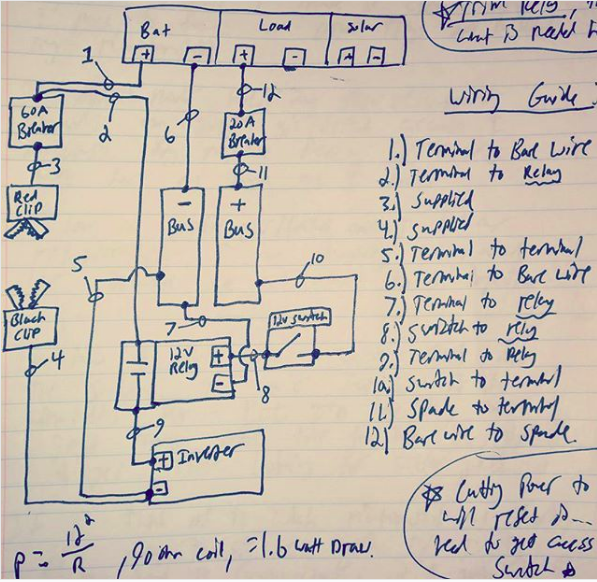 Bat Load Solar
+ - + - + -
Trim Relay,
what is needed
1
2
60A
Breaker
3
Red
Clip
6
12
20A
Breaker
11
Wiring Guide:
1.) Terminal to Bare Wire
2.) Terminal to Relay
3.) Supplied
4.) Supplied
5.) Terminal to terminal
6.) Terminal to Bare Wire
7.) Terminal to relay
8.) Switch to relay
9.) Terminal to Relay
10.) Switch to terminal
11.) Spade to terminal
12.) Bare wire to Spade.
-
Bus
+
Bus
5
10
Black
Clip
4
7
12v switch
12v
Relay
+
-
8
9
+ Inverter
-
Cutting Power to
will reset
need to get access
Switch
P = 12²/R , 90 ohm coil, = 1.6 watt Draw.